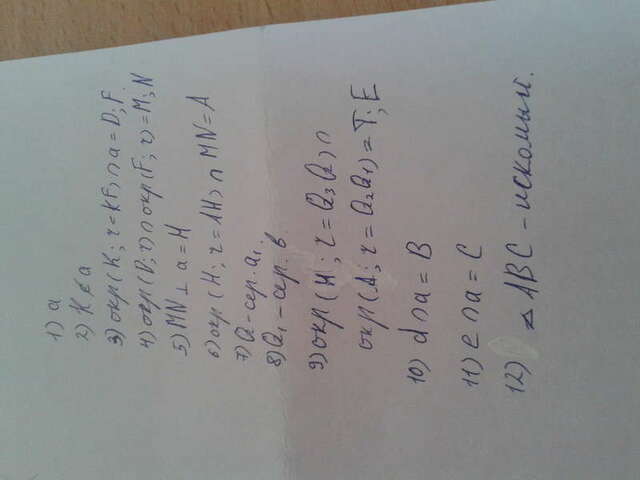 1) a
2) K ∉ a
3) окр(K; r=KF) ∩ a = D; F
4) окр(D; r) ∩ окр(F; r) = M; N
5) MN ⊥ a = H
6) окр(H; r=1H) ∩ MN = A
7) Q - сер. a₁
8) Q₁ - сер. в
9) окр(H; r=Q₃Q₂) ∩
окр(A; r=Q₂Q₁) = T; E
10) d ∩ a = B
11) e ∩ a = C
12) △ ABC - искомый.